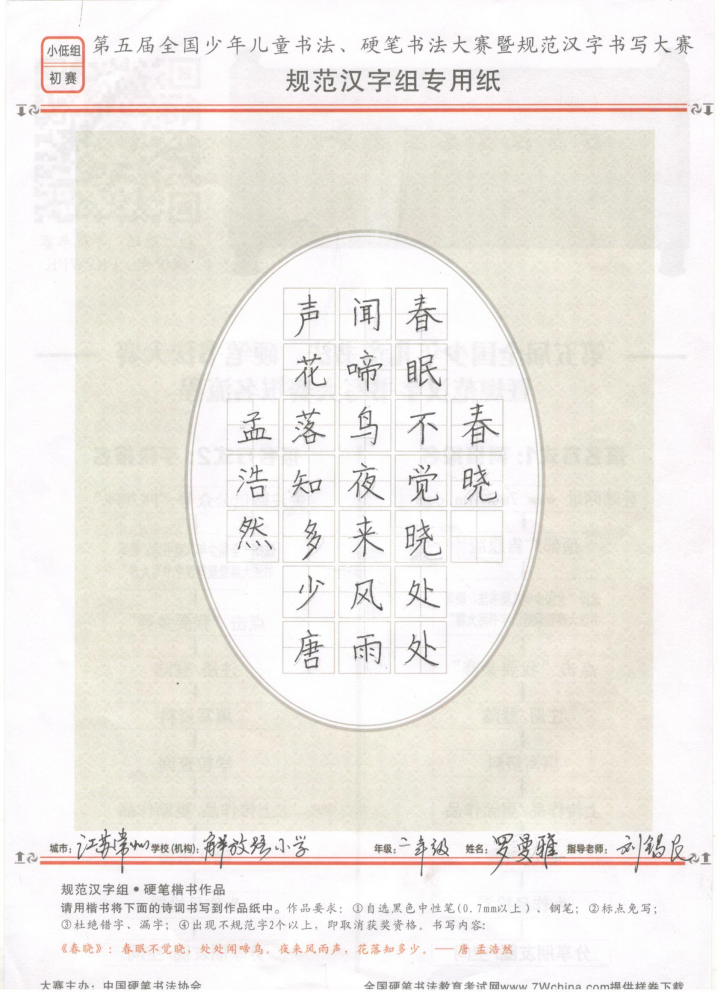 小低组
初赛
第五届全国少年儿童书法、硬笔书法大赛暨规范汉字书写大赛
规范汉字组专用纸
春晓
春眠不觉晓处处
闻啼鸟夜来风雨
声花落知多少唐
孟浩然
城市：江苏常州 学校(机构)：解放路小学 年级：二年级 姓名：罗曼雅 指导老师：刘锡民
规范汉字组●硬笔楷书作品
请用楷书将下面的诗词书写到作品纸中。作品要求：①自选黑色中性笔(0.7mm以上)、钢笔；②标点免写；
③杜绝错字、漏字；④出现不规范字2个以上，即取消获奖资格。书写内容：
《春晓》：春眠不觉晓，处处闻啼鸟，夜来风雨声，花落知多少。——唐 孟浩然
大赛主办：中国硬笔书法协会 全国硬笔书法教育考试网www.7Wchina.com提供样卷下载